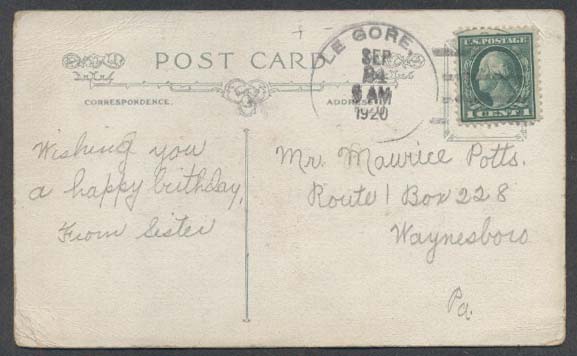 POST CARD
CORRESPONDENCE.
ADDRESS
LE GORE,
SEP
8 AM
1920
U.S. POSTAGE
1 CENT 1
Wishing you
a happy birthday,
From Sister
Mr. Maurice Potts.
Route 1 Box 228
Waynesboro
Pa.